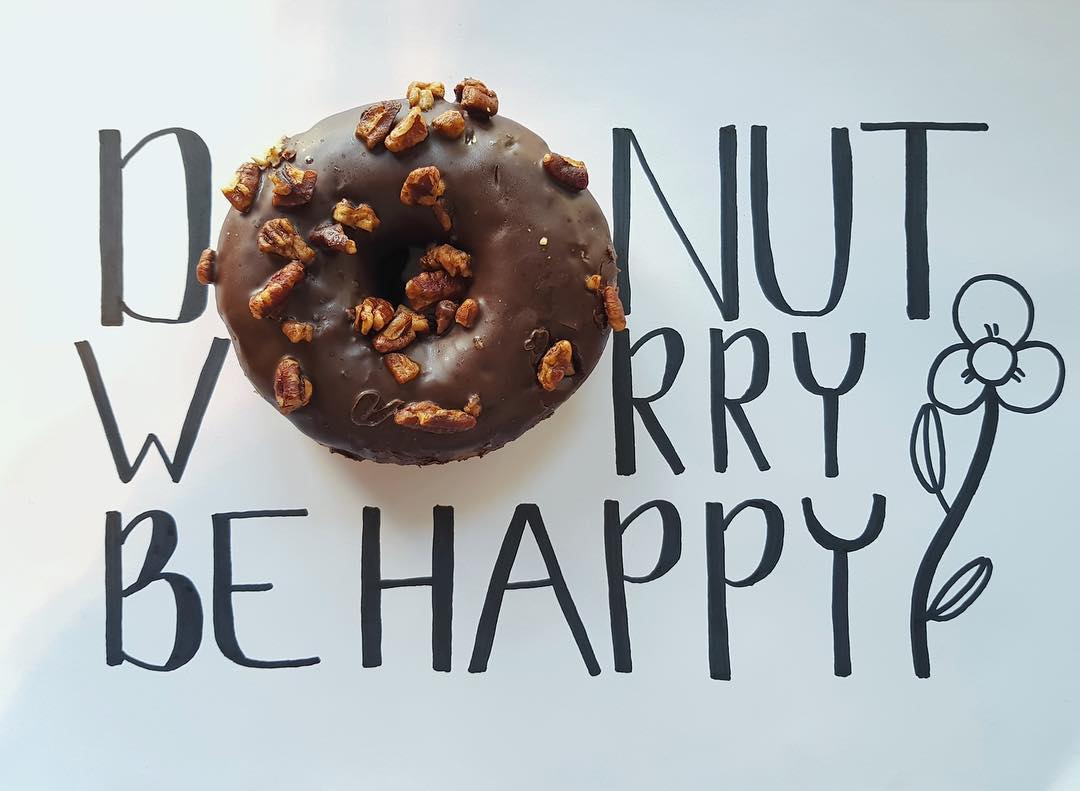 DONUT
WORRY
BE HAPPY